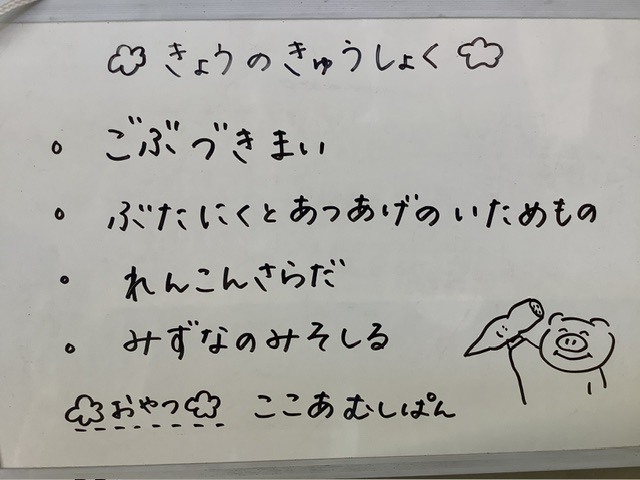 きょうのきゅうしょく
ごぶづきまい
ぶたにくとあつあげのいためもの
れんこんさらだ
みずなのみそしる
おやつ ここあむしぱん